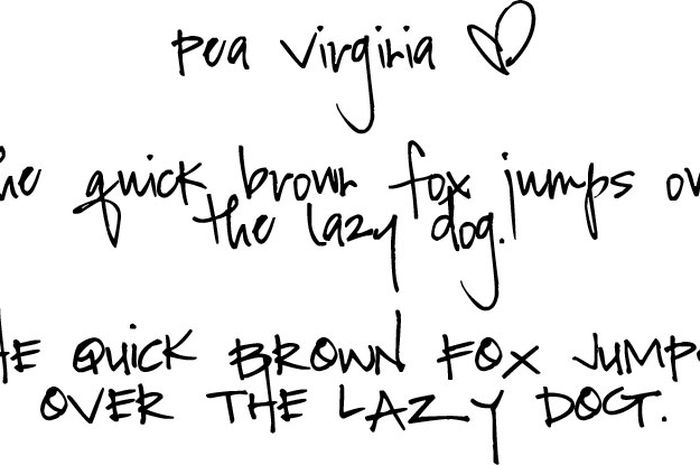 pea virginia
he quick brown fox jumps ov
the lazy dog.
HE QUICK BROWN FOX JUMP
OVER THE LAZY DOG.